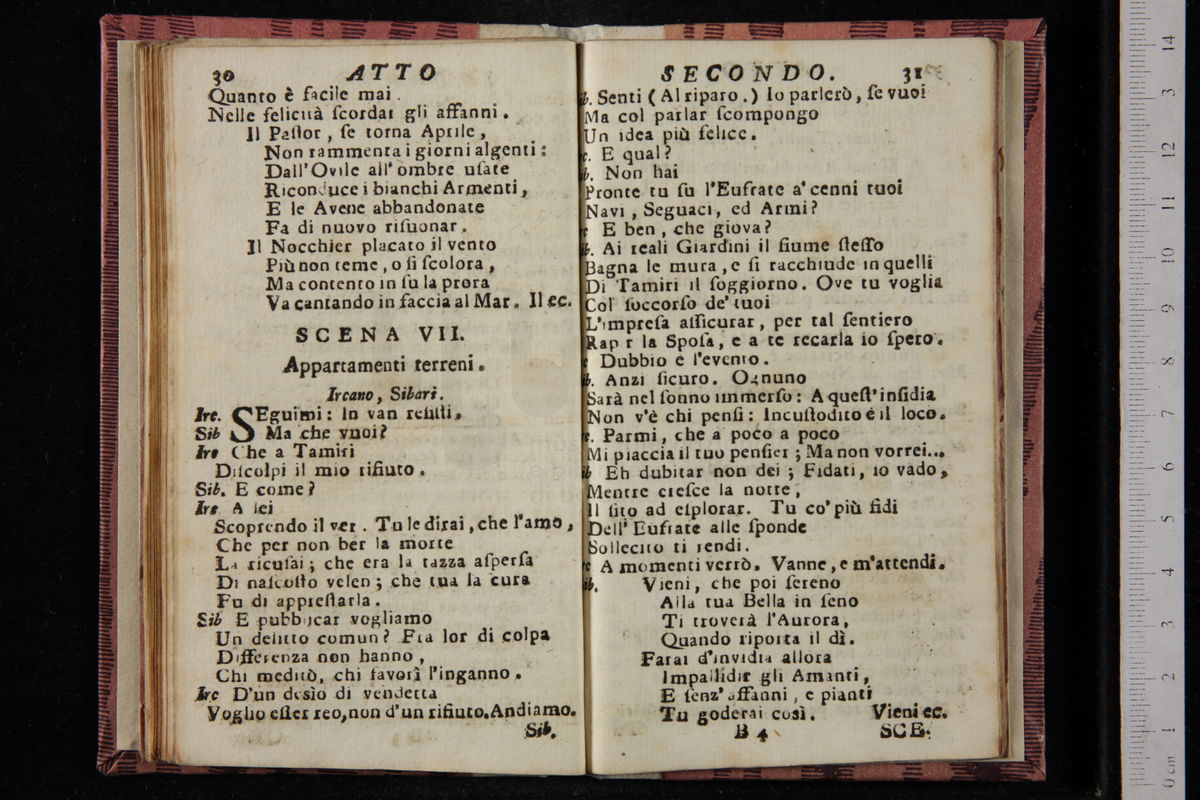 30 ATTO
Quanto è facile mai.
Nelle felicità ſcordar gli affanni.
Il Paſtor, ſe torna Aprile,
Non rammenta i giorni algenti:
Dall'Ovile all'ombre uſate
Riconduce i bianchi Armenti,
E le Avene abbandonate
Fa di nuovo riſuonar.
Il Nocchier placato il vento
Più non teme, o ſi ſcolora,
Ma contento in ſu la prora
Va cantando in faccia al Mar. Il ec.
SCENA VII.
Appartamenti terreni.
Ircano, Sibari.
Irc. SEguimi: In van reſiſti.
Sib Ma che vuoi?
Irc Che a Tamiri
Diſcolpi il mio rifiuto.
Sib. E come?
Irc A lei
Scoprendo il ver. Tu le dirai, che l'amo,
Che per non ber la morte
La ricuſai; che era la tazza aſperſa
Di naſcoſto velen; che tua la cura
Fu di appreſtarla.
Sib E pubblicar vogliamo
Un delitto comun? Fra lor di colpa
Differenza non hanno,
Chi meditò, chi favorì l'inganno.
Irc D'un desìo di vendetta
Voglio eſſer reo, non d'un rifiuto. Andiamo.
Sib.
SECONDO. 31
ib. Senti (Al riparo.) Io parlerò, ſe vuoi
Ma col parlar ſcompongo
Un idea più felice.
c. E qual?
ib. Non hai
Pronte tu ſu l'Eufrate a' cenni tuoi
Navi, Seguaci, ed Armi?
c E ben, che giova?
ib. Ai reali Giardini il fiume ſteſſo
Bagna le mura, e ſi racchiude in quelli
Di Tamiri il ſoggiorno. Ove tu voglia
Col ſoccorſo de' tuoi
L'impreſa aſſicurar, per tal ſentiero
Rap r la Spoſa, e a te recarla io ſpero.
c Dubbio è l'evento.
ib. Anzi ſicuro. Ognuno
Sarà nel ſonno immerſo: A queſt'inſidia
Non v'è chi penſi: Incuſtodito è il loco.
c. Parmi, che a poco a poco
Mi piaccia il tuo penſier; Ma non vorrei...
ib Eh dubitar non dei; Fidati, io vado,
Mentre creſce la notte,
Il ſito ad eſplorar. Tu co' più fidi
Dell' Eufrate alle ſponde
Sollecito ti rendi.
c A momenti verrò. Vanne, e m'attendi.
ib. Vieni, che poi ſereno
Alla tua Bella in ſeno
Ti troverà l'Aurora,
Quando riporta il dì.
Farai d'invidia allora
Impallidir gli Amanti,
E ſenz'affanni, e pianti
Tu goderai così. Vieni ec.
B 4 SCE-
14
13
12
11
10
9
8
7
6
5
4
3
2
1
0 cm